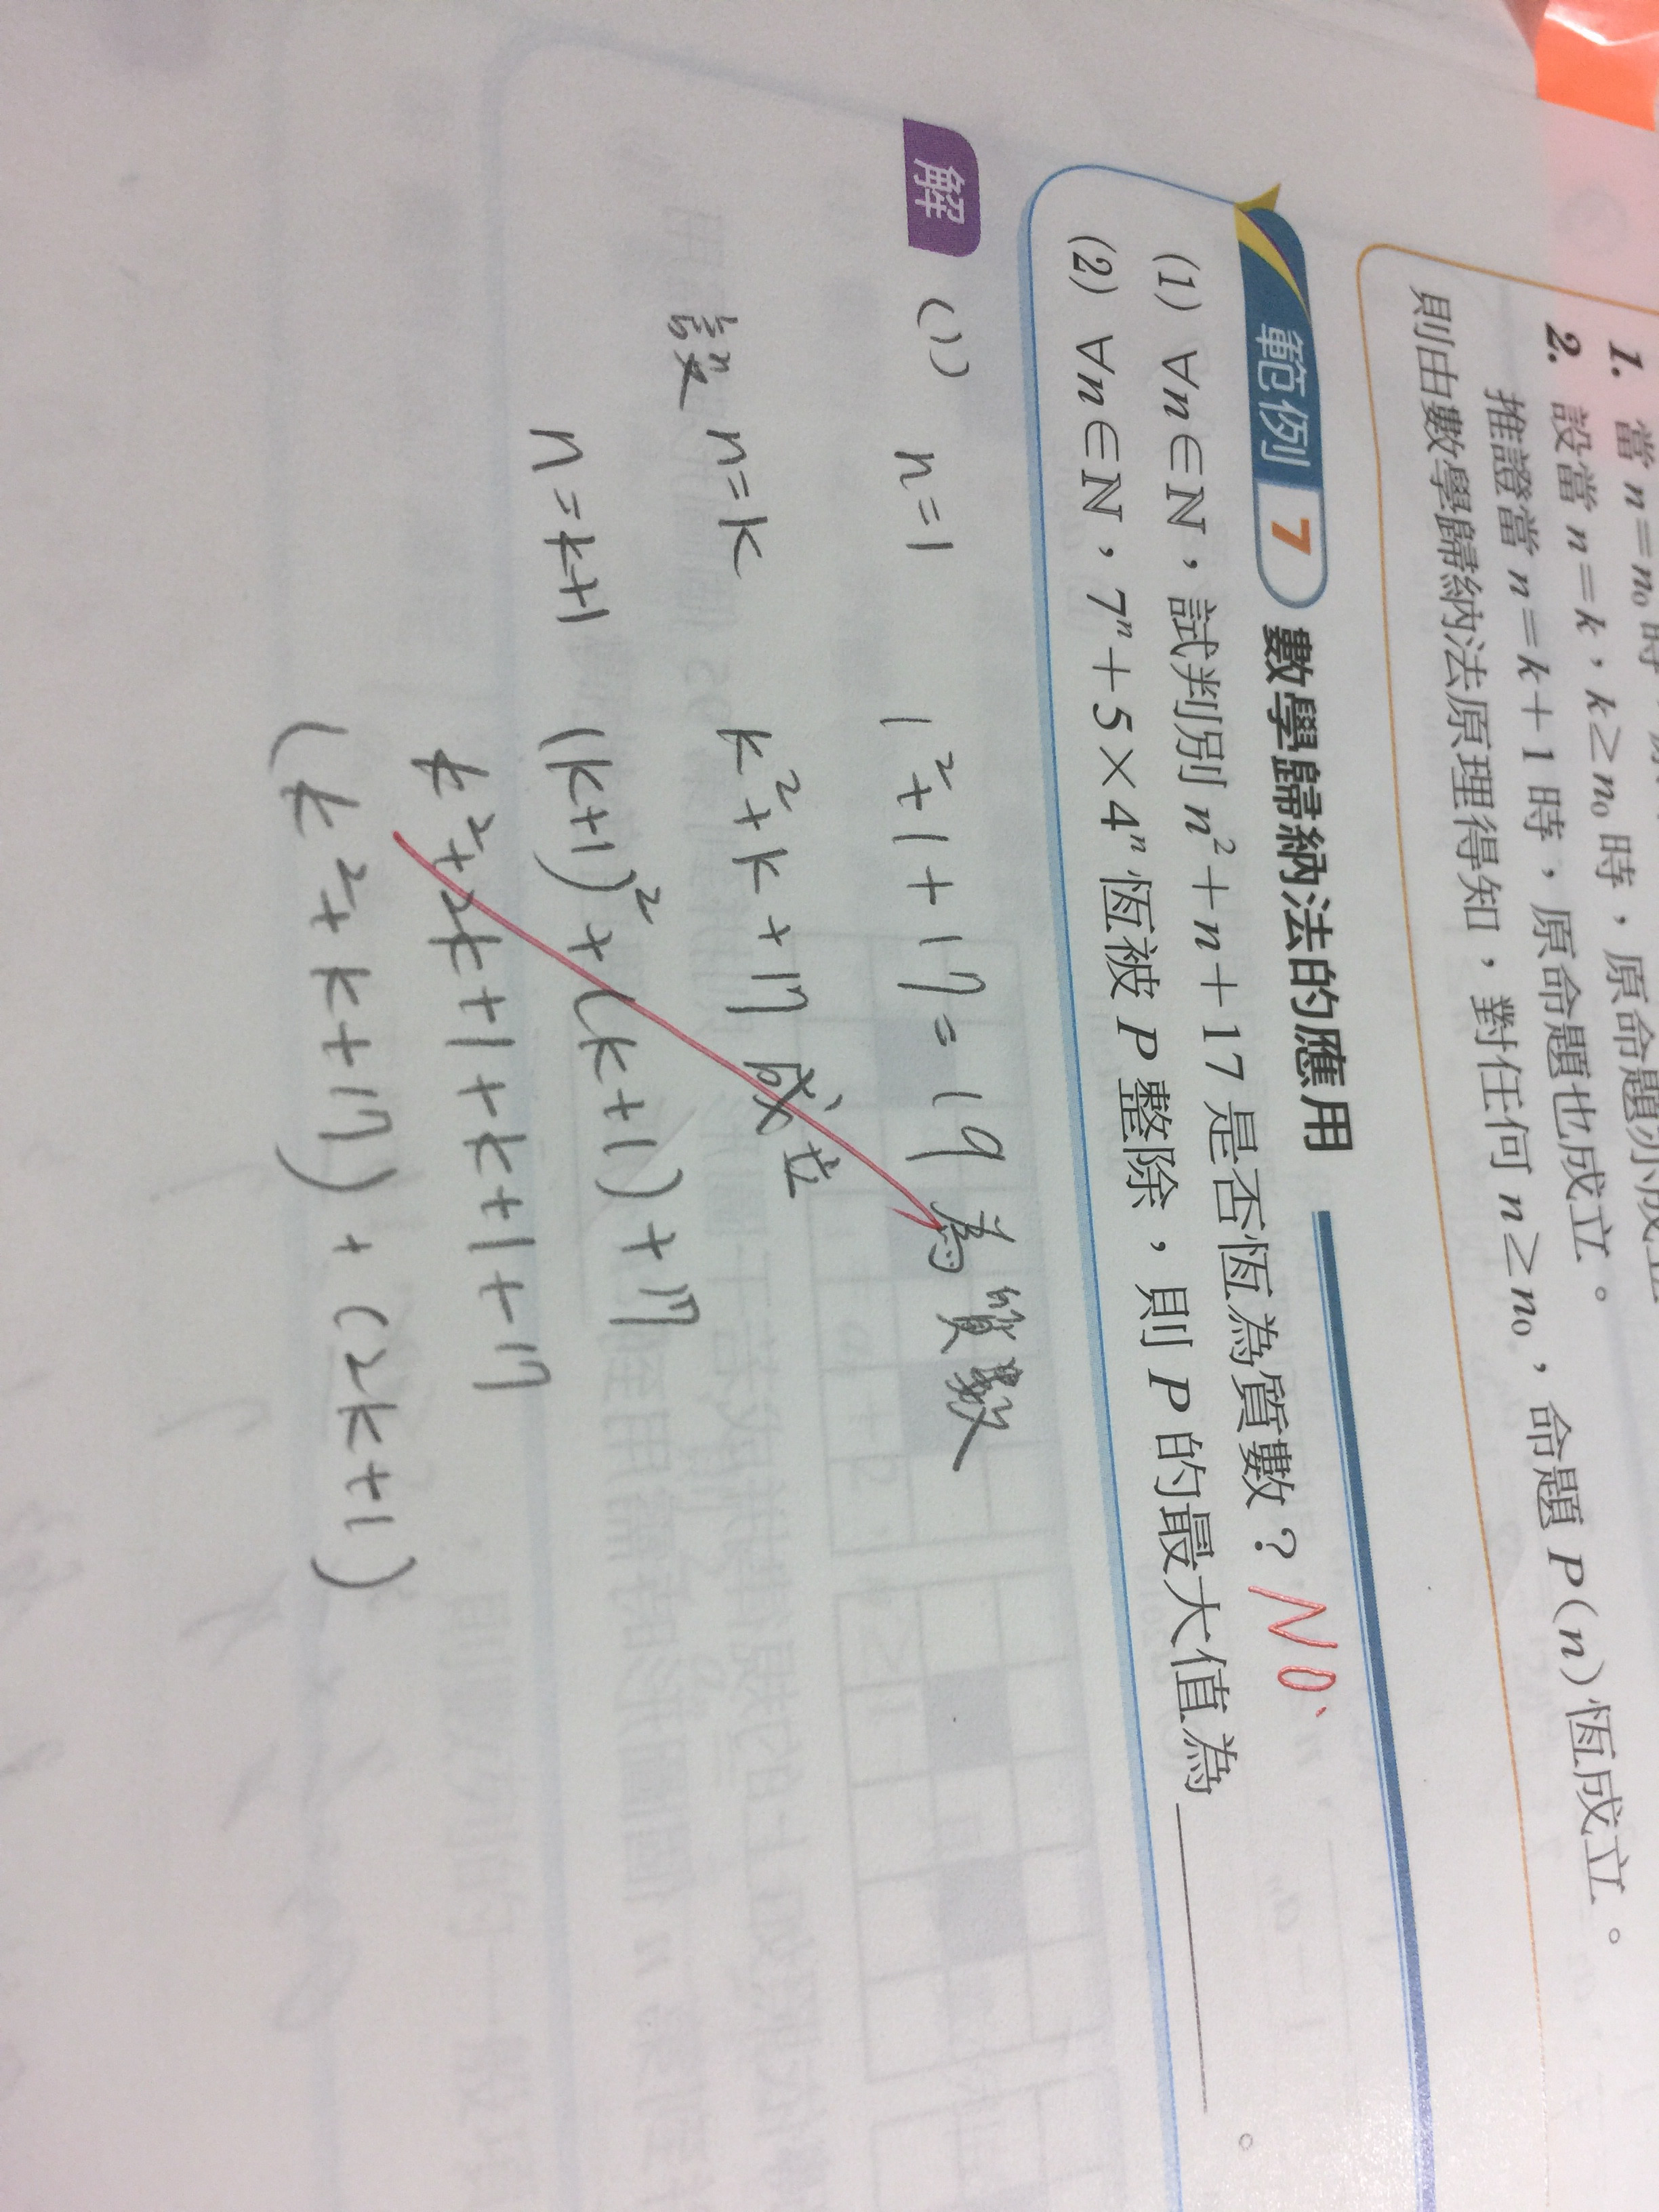 1. 當 n=n₀ 時
2. 設當 n=k,k≥n₀ 時,原命題亦成立
推證當 n=k+1 時,原命題也成立。
則由數學歸納法原理得知,對任何 n≥n₀,命題 P(n) 恆成立。
範例 7 數學歸納法的應用
(1) ∀n∈N,試判別 n²+n+17 是否恆為質數? NO
(2) ∀n∈N,7ⁿ+5×4ⁿ 恆被 P 整除,則 P 的最大值為______。
解 (1) n=1 1²+1+17=19 為質數
設 n=k k²+k+17 成立
n=k+1 (k+1)²+(k+1)+17
k²+2k+1+k+1+17
(k²+k+17)+(2k+1)